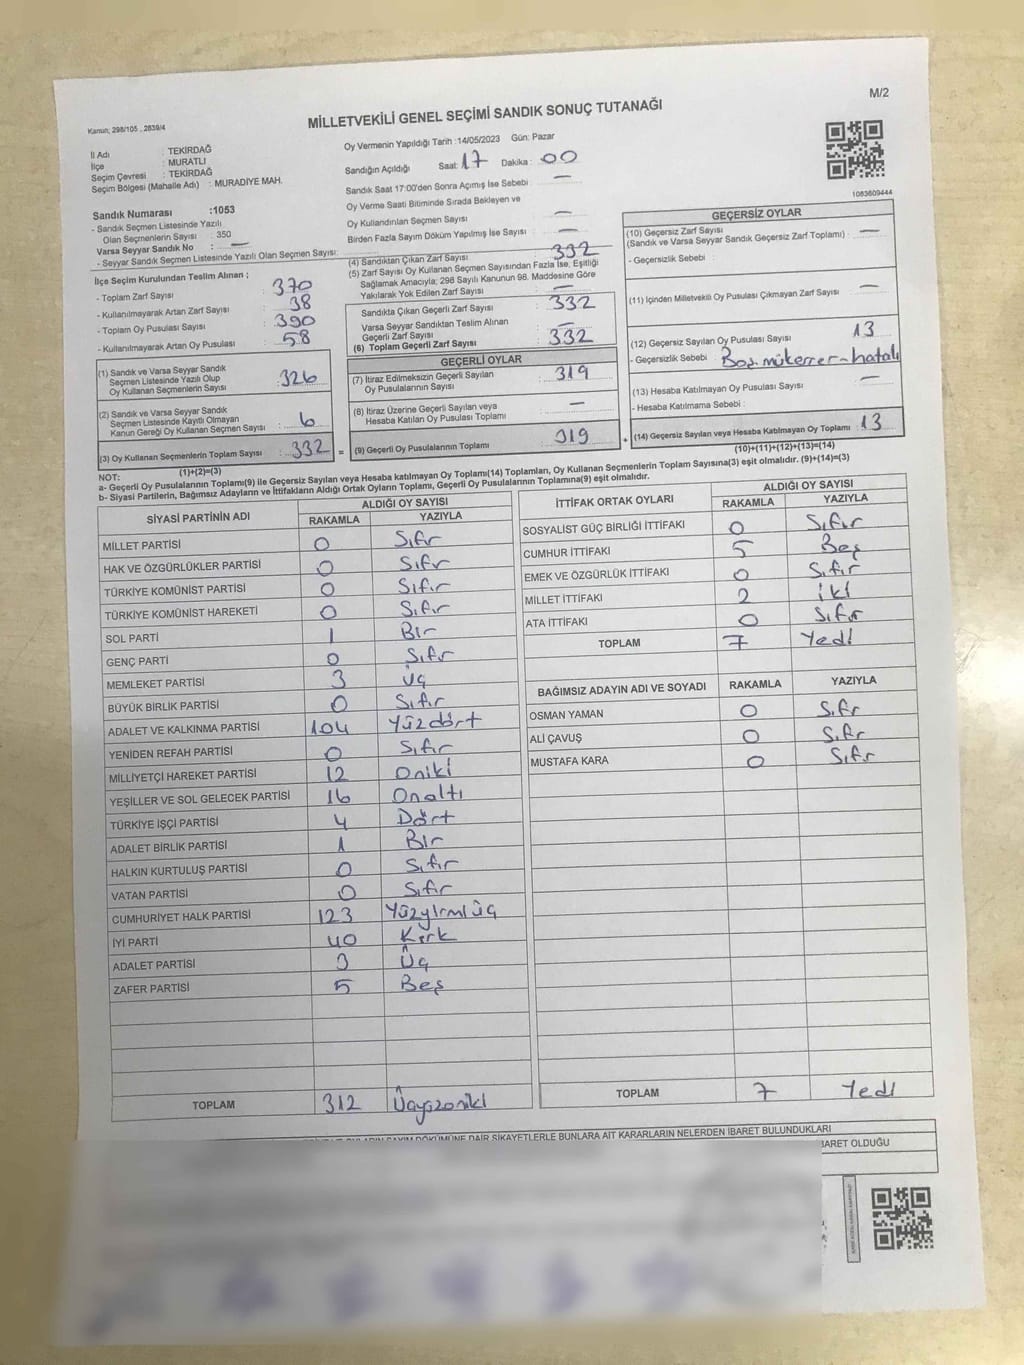 M/2
Kanun; 298/105 , 2839/4
MİLLETVEKİLİ GENEL SEÇİMİ SANDIK SONUÇ TUTANAĞI
İl Adı : TEKİRDAĞ
İlçe : MURATLI
Seçim Çevresi : TEKİRDAĞ
Seçim Bölgesi (Mahalle Adı) : MURADİYE MAH.
Sandık Numarası :1053
- Sandık Seçmen Listesinde Yazılı
Olan Seçmenlerin Sayısı : 350
Varsa Seyyar Sandık No : —
- Seyyar Sandık Seçmen Listesinde Yazılı Olan Seçmen Sayısı:
Oy Vermenin Yapıldığı Tarih :14/05/2023 Gün: Pazar
Sandığın Açıldığı Saat: 17 Dakika: 00
Sandık Saat 17:00'den Sonra Açımış İse Sebebi : —
Oy Verme Saati Bitiminde Sırada Bekleyen ve
Oy Kullandırılan Seçmen Sayısı : —
Birden Fazla Sayım Döküm Yapılmış İse Sayısı : —
1083609444
İlçe Seçim Kurulundan Teslim Alınan ;
- Toplam Zarf Sayısı : 370
- Kullanılmayarak Artan Zarf Sayısı : 38
- Toplam Oy Pusulası Sayısı : 390
- Kullanılmayarak Artan Oy Pusulası : 58
(1) Sandık ve Varsa Seyyar Sandık
Seçmen Listesinde Yazılı Olup
Oy Kullanan Seçmenlerin Sayısı : 326
(2) Sandık ve Varsa Seyyar Sandık
Seçmen Listesinde Kayıtlı Olmayan
Kanun Gereği Oy Kullanan Seçmen Sayısı : 6
(3) Oy Kullanan Seçmenlerin Toplam Sayısı : 332
(1)+(2)=(3)
(4) Sandıktan Çıkan Zarf Sayısı : 332
(5) Zarf Sayısı Oy Kullanan Seçmen Sayısından Fazla İse, Eşitliği
Sağlamak Amacıyla; 298 Sayılı Kanunun 98. Maddesine Göre
Yakılarak Yok Edilen Zarf Sayısı : —
Sandıkta Çıkan Geçerli Zarf Sayısı : 332
Varsa Seyyar Sandıktan Teslim Alınan
Geçerli Zarf Sayısı : —
(6) Toplam Geçerli Zarf Sayısı : 332
GEÇERLİ OYLAR
(7) İtiraz Edilmeksizin Geçerli Sayılan
Oy Pusulalarının Sayısı : 319
(8) İtiraz Üzerine Geçerli Sayılan veya
Hesaba Katılan Oy Pusulası Toplamı : —
= (9) Geçerli Oy Pusulalarının Toplamı : 319
GEÇERSİZ OYLAR
(10) Geçersiz Zarf Sayısı
(Sandık ve Varsa Seyyar Sandık Geçersiz Zarf Toplamı) : —
- Geçersizlik Sebebi :
(11) İçinden Milletvekili Oy Pusulası Çıkmayan Zarf Sayısı : —
(12) Geçersiz Sayılan Oy Pusulası Sayısı : 13
- Geçersizlik Sebebi : Boş-mükerrer-hatalı
(13) Hesaba Katılmayan Oy Pusulası Sayısı : —
- Hesaba Katılmama Sebebi :
+ (14) Geçersiz Sayılan veya Hesaba Katılmayan Oy Toplamı : 13
(10)+(11)+(12)+(13)=(14)
NOT:
a- Geçerli Oy Pusulalarının Toplamı(9) ile Geçersiz Sayılan veya Hesaba katılmayan Oy Toplamı(14) Toplamları, Oy Kullanan Seçmenlerin Toplam Sayısına(3) eşit olmalıdır. (9)+(14)=(3)
b- Siyasi Partilerin, Bağımsız Adayların ve İttifakların Aldığı Ortak Oyların Toplamı, Geçerli Oy Pusulalarının Toplamına(9) eşit olmalıdır.
SİYASİ PARTİNİN ADI ALDIĞI OY SAYISI
RAKAMLA YAZIYLA
MİLLET PARTİSİ 0 Sıfır
HAK VE ÖZGÜRLÜKLER PARTİSİ 0 Sıfır
TÜRKİYE KOMÜNİST PARTİSİ 0 Sıfır
TÜRKİYE KOMÜNİST HAREKETİ 0 Sıfır
SOL PARTİ 1 Bir
GENÇ PARTİ 0 Sıfır
MEMLEKET PARTİSİ 3 Üç
BÜYÜK BİRLİK PARTİSİ 0 Sıfır
ADALET VE KALKINMA PARTİSİ 104 Yüzdört
YENİDEN REFAH PARTİSİ 0 Sıfır
MİLLİYETÇİ HAREKET PARTİSİ 12 Oniki
YEŞİLLER VE SOL GELECEK PARTİSİ 16 Onaltı
TÜRKİYE İŞÇİ PARTİSİ 4 Dört
ADALET BİRLİK PARTİSİ 1 Bir
HALKIN KURTULUŞ PARTİSİ 0 Sıfır
VATAN PARTİSİ 0 Sıfır
CUMHURİYET HALK PARTİSİ 123 Yüzyirmiüç
İYİ PARTİ 40 Kırk
ADALET PARTİSİ 3 Üç
ZAFER PARTİSİ 5 Beş
TOPLAM 312 Üçyüzoniki
İTTİFAK ORTAK OYLARI ALDIĞI OY SAYISI
RAKAMLA YAZIYLA
SOSYALİST GÜÇ BİRLİĞİ İTTİFAKI 0 Sıfır
CUMHUR İTTİFAKI 5 Beş
EMEK VE ÖZGÜRLÜK İTTİFAKI 0 Sıfır
MİLLET İTTİFAKI 2 İki
ATA İTTİFAKI 0 Sıfır
TOPLAM 7 Yedi
BAĞIMSIZ ADAYIN ADI VE SOYADI RAKAMLA YAZIYLA
OSMAN YAMAN 0 Sıfır
ALİ ÇAVUŞ 0 Sıfır
MUSTAFA KARA 0 Sıfır
TOPLAM 7 Yedi
SAYIM DÖKÜMÜNE DAİR ŞİKAYETLERLE BUNLARA AİT KARARLARIN NELERDEN İBARET BULUNDUKLARI
İBARET OLDUĞU